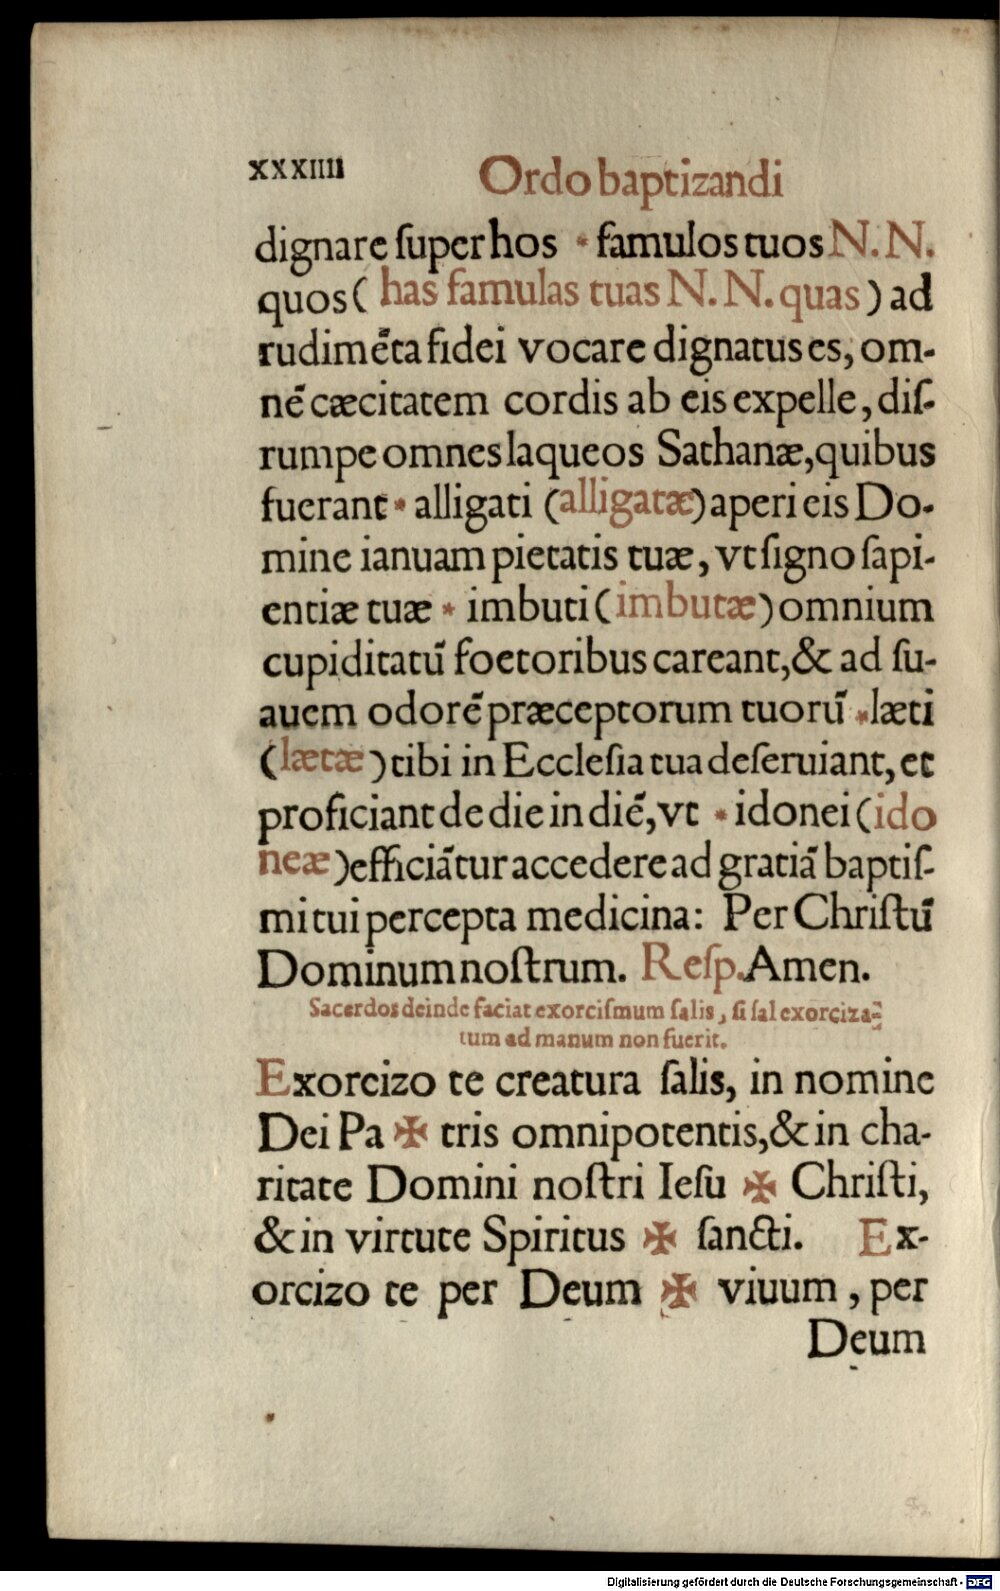 xxxiiii
Ordo baptizandi
dignare ſuper hos * famulos tuos N. N.
quos ( has famulas tuas N. N. quas ) ad
rudimēta fidei vocare dignatus es, om-
nē cæcitatem cordis ab eis expelle, diſ-
rumpe omnes laqueos Sathanæ, quibus
fuerant * alligati (alligatæ) aperi eis Do-
mine ianuam pietatis tuæ, vt ſigno ſapi-
entiæ tuæ * imbuti (imbutæ) omnium
cupiditatū foetoribus careant, & ad ſu-
auem odorē præceptorum tuorū * læti
(lætæ) tibi in Eccleſia tua deſeruiant, et
proficiant de die in diē, vt * idonei (ido
neæ) efficiātur accedere ad gratiā baptiſ-
mi tui percepta medicina: Per Chriſtū
Dominum noſtrum. Reſp. Amen.
Sacerdos deinde faciat exorciſmum ſalis, ſi ſal exorciza-
tum ad manum non fuerit.
Exorcizo te creatura ſalis, in nomine
Dei Pa ✠ tris omnipotentis, & in cha-
ritate Domini noſtri Ieſu ✠ Chriſti,
& in virtute Spiritus ✠ ſancti. Ex-
orcizo te per Deum ✠ viuum, per
Deum
Digitalisierung gefördert durch die Deutsche Forschungsgemeinschaft - DFG